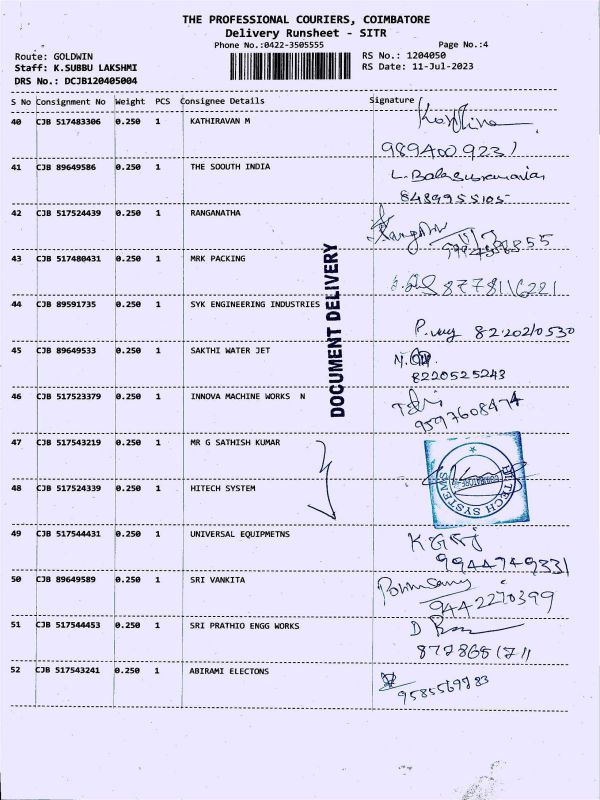 THE PROFESSIONAL COURIERS, COIMBATORE
Delivery Runsheet - SITR
Phone No.:0422-3505555 Page No.:4
Route: GOLDWIN RS No.: 1204050
Staff: K.SUBBU LAKSHMI RS Date: 11-Jul-2023
DRS No.: DCJB120405004
S No Consignment No Weight PCS Consignee Details Signature
40 CJB 517483306 0.250 1 KATHIRAVAN M
9894009231
41 CJB 89649586 0.250 1 THE SOOUTH INDIA L. Balasubramanian
8489955105
42 CJB 517524439 0.250 1 RANGANATHA
43 CJB 517480431 0.250 1 MRK PACKING
8778116221
44 CJB 89591735 0.250 1 SYK ENGINEERING INDUSTRIES
8220210530
45 CJB 89649533 0.250 1 SAKTHI WATER JET
8220525243
46 CJB 517523379 0.250 1 INNOVA MACHINE WORKS N
9597608474
47 CJB 517543219 0.250 1 MR G SATHISH KUMAR
48 CJB 517524339 0.250 1 HITECH SYSTEM
HITECH SYSTEMS
49 CJB 517544431 0.250 1 UNIVERSAL EQUIPMETNS
9944749331
50 CJB 89649589 0.250 1 SRI VANKITA
9442270399
51 CJB 517544453 0.250 1 SRI PRATHIO ENGG WORKS
8728681711
52 CJB 517543241 0.250 1 ABIRAMI ELECTONS
9585569783
DOCUMENT DELIVERY